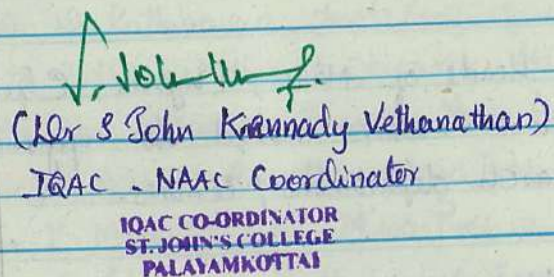 (Dr S John Kennady Vethanathan)
IQAC - NAAC Coordinator
IQAC CO-ORDINATOR
ST. JOHN'S COLLEGE
PALAYAMKOTTAI